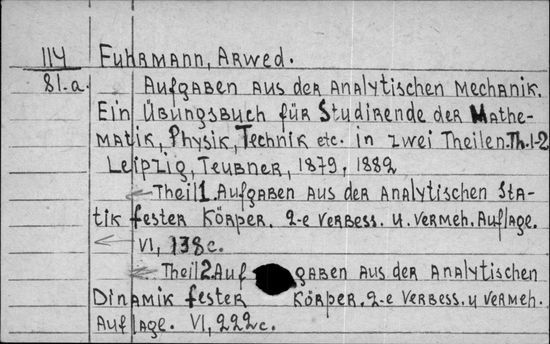 114 Fuhrmann, Arwed.
81.a. Aufgaben aus der analytischen Mechanik.
Ein Übungsbuch für Studirende der Mathe-
matik, Physik, Technik etc. in zwei Theilen. Th.1-2
Leipzig, Teubner, 1879, 1882
Theil 1. Aufgaben aus der analytischen Sta-
tik fester Körper. 2-e verbess. u. vermeh. Auflage.
VI, 138 c.
Theil 2. Aufgaben aus der analytischen
Dinamik fester Körper. 2-e verbess. u vermeh.
Auflage. VI, 222 c.